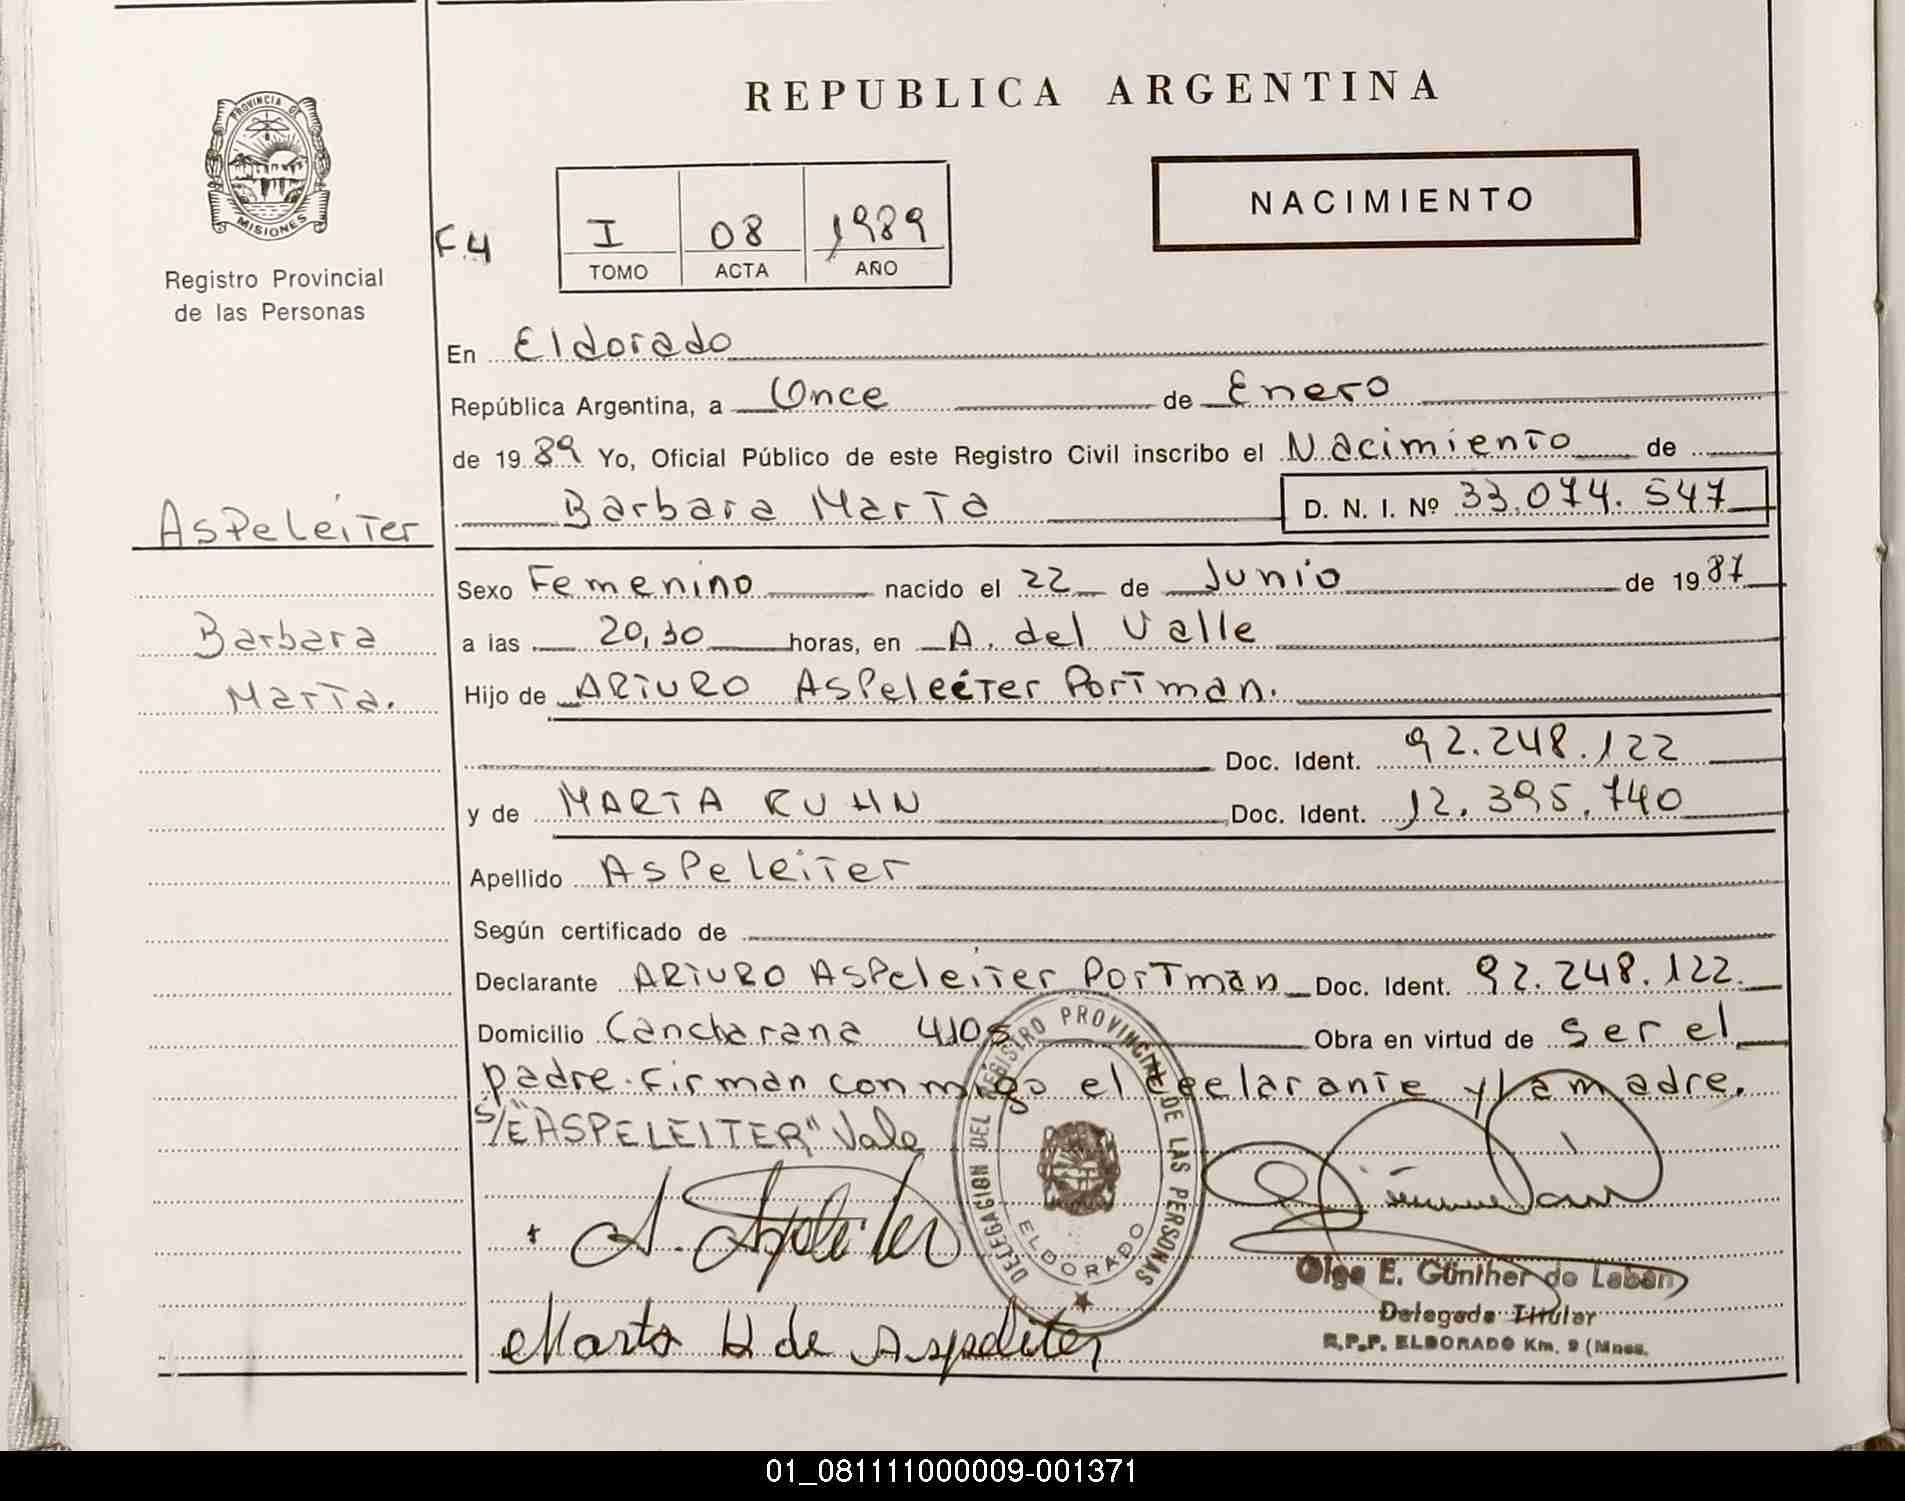 REPUBLICA ARGENTINA
PROVINCIA DE
MISIONES
Registro Provincial
de las Personas
NACIMIENTO
F.4
I 08 1989
TOMO ACTA AÑO
En Eldorado
República Argentina, a Once de Enero
de 1989 Yo, Oficial Público de este Registro Civil inscribo el Nacimiento de
Barbara Marta D. N. I. Nº 33.074.547
Aspeleiter
Barbara
Marta.
Sexo Femenino nacido el 22 de Junio de 1987
a las 20,30 horas, en A. del Valle
Hijo de ARTURO Aspeleiter Portman.
Doc. Ident. 92.248.122
y de MARTA KUHN Doc. Ident. 12.395.740
Apellido Aspeleiter
Según certificado de
Declarante ARTURO Aspeleiter Portman Doc. Ident. 92.248.122.
Domicilio 4105 Obra en virtud de ser el
padre. Firman conmigo el declarante y la madre.
S/E "ASPELEITER" Vale
A. Aspeleiter
Marta H de Aspeleiter
DELEGACION DEL REGISTRO PROVINCIAL DE LAS PERSONAS
ELDORADO
Olga E. Günther de Laban
Delegada Titular
R.P.P. ELDORADO Km. 9 (Mnes.
01_081111000009-001371